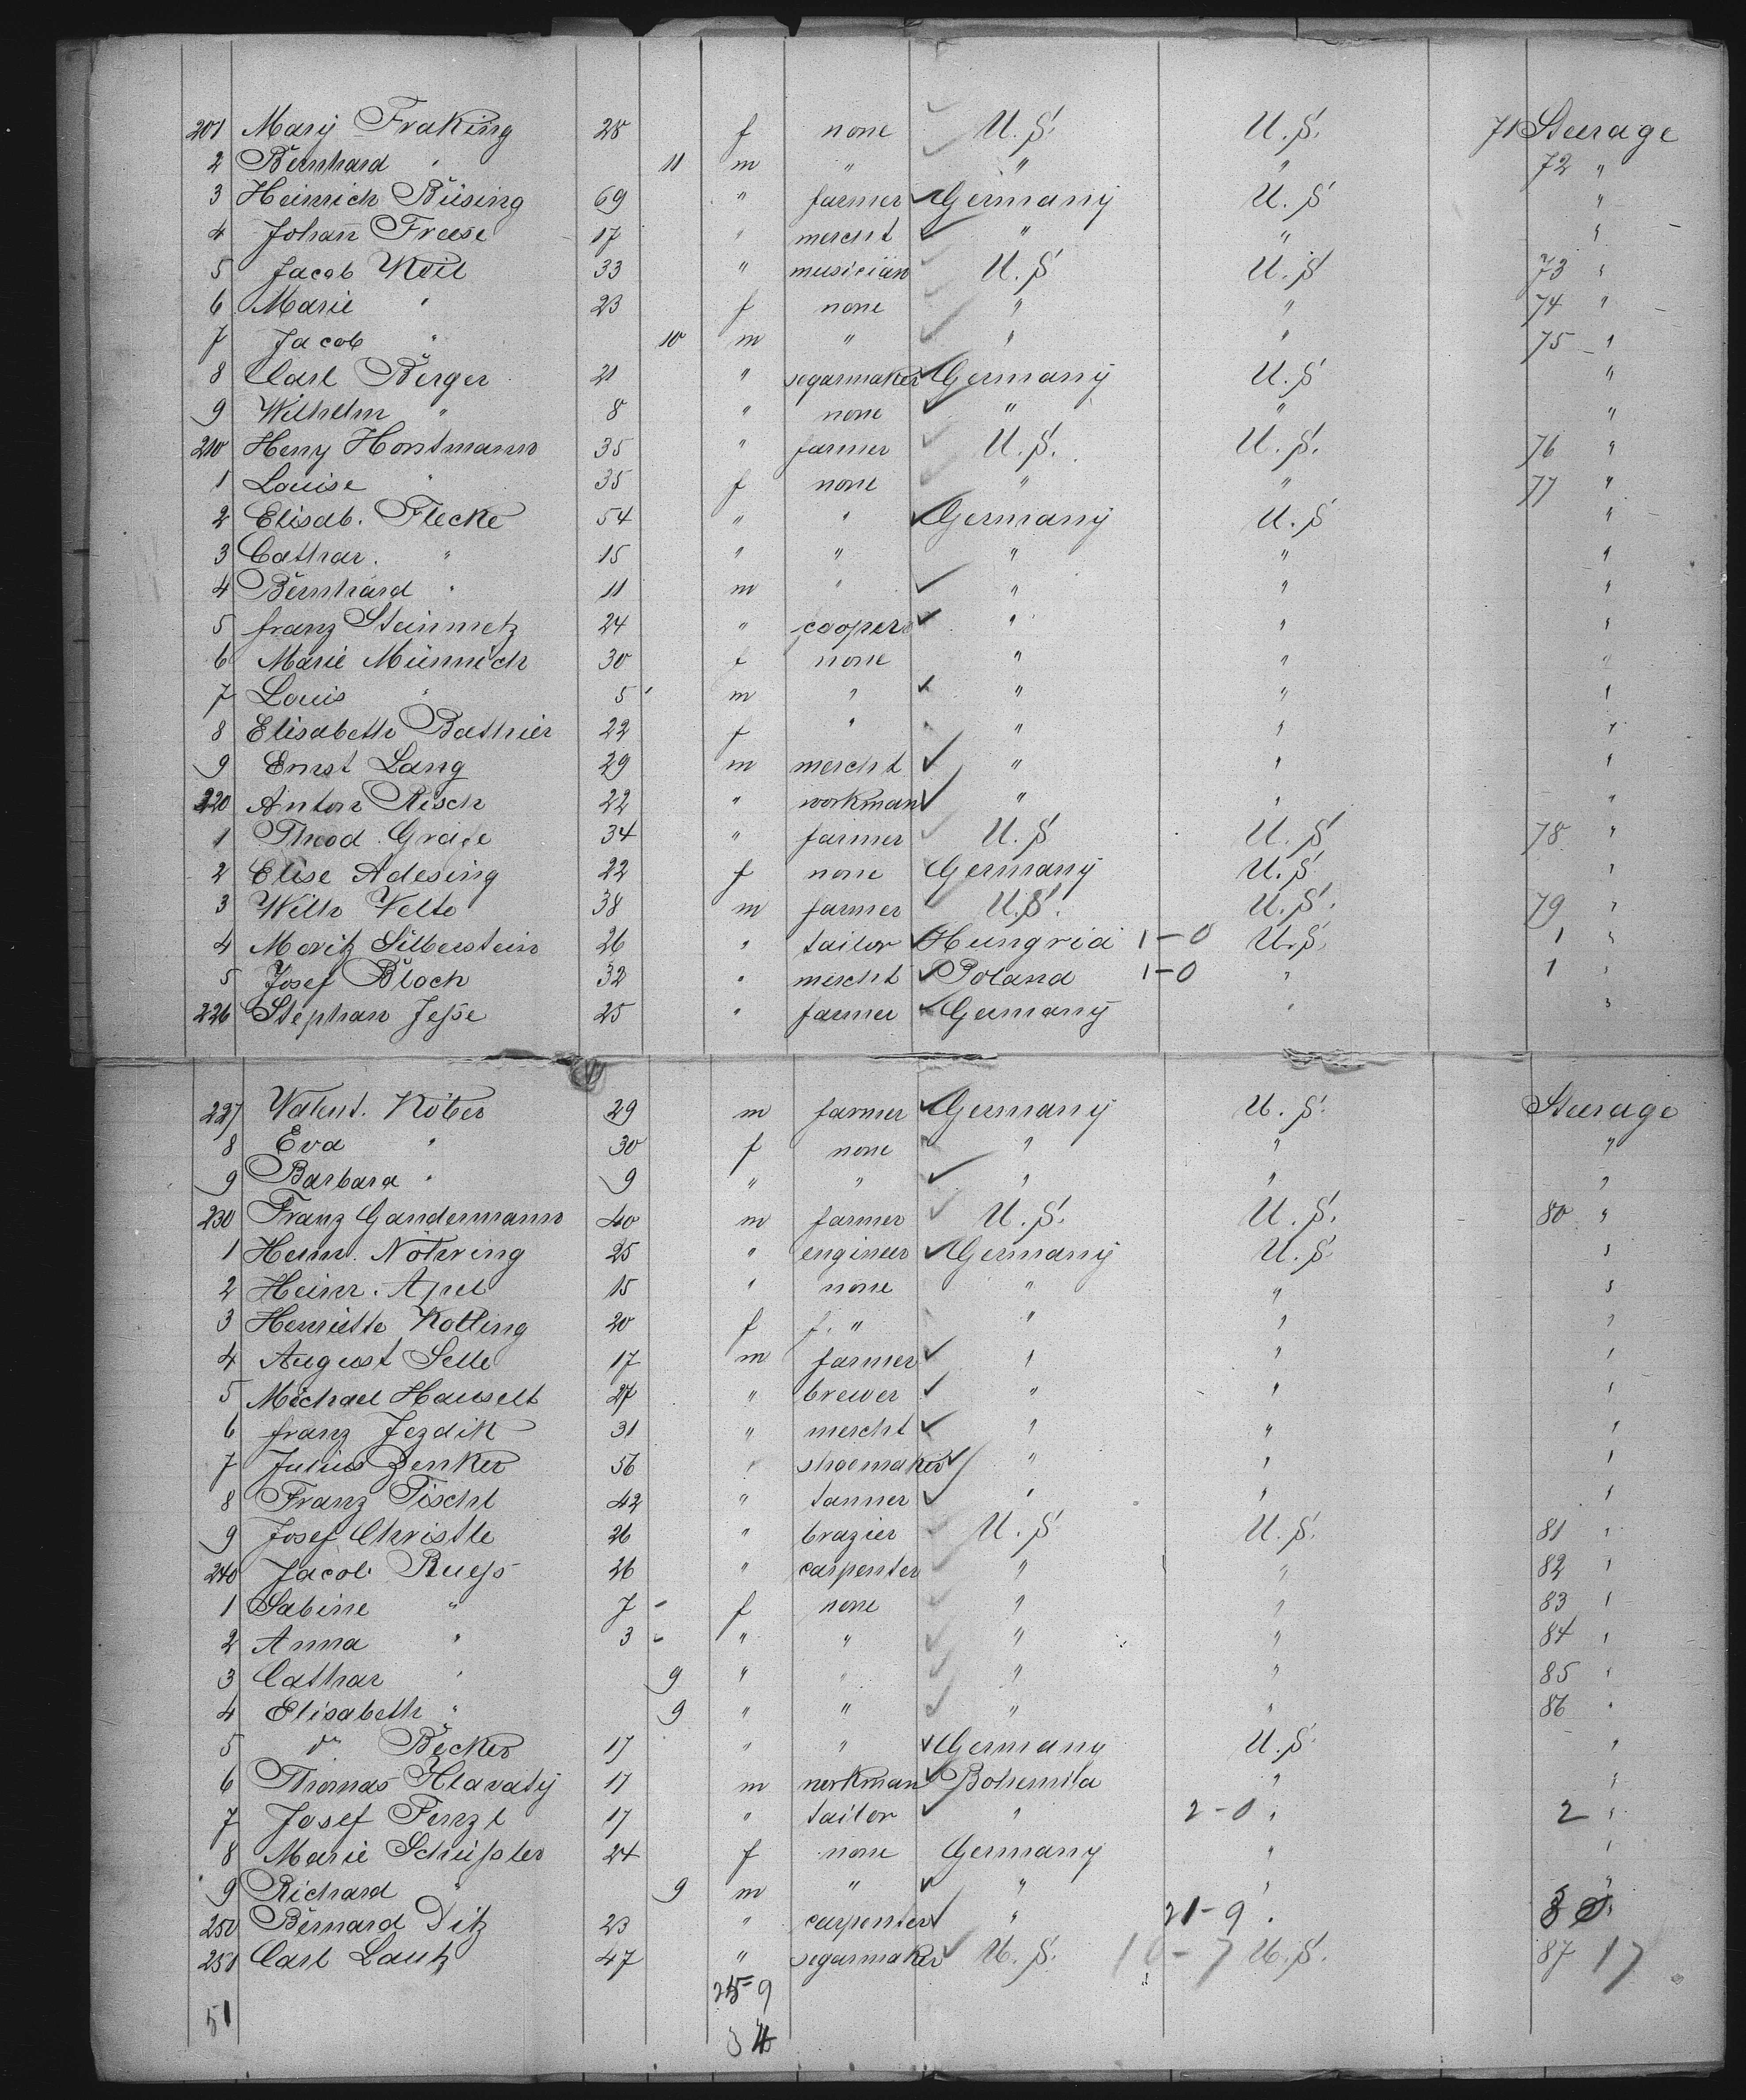 201 Mary Fraking 28 f none U.S. U.S. 71 Steerage
2 Bernhard " 11 m " " " 72 "
3 Heinrich Büsing 69 " farmer Germany U.S "
4 Johan Freese 17 " mercht " " "
5 Jacob Keil 33 " musician U.S U.S 73 "
6 Marie " 23 f none " " 74 "
7 Jacob " 10 m " " " 75 "
8 Carl Berger 21 " segarmaker Germany U.S "
9 Wilhelm " 8 " none " " "
210 Heny Horstmann 35 " farmer U.S. U.S. 76 "
1 Louise " 35 f none " " 77 "
2 Elisab. Flecke 54 " " Germany U.S "
3 Cathar. " 15 " " " " "
4 Bernhard " 11 m " " " "
5 franz Steinmetz 24 " cooper " " "
6 Marie Münnich 30 f none " " "
7 Louis " 5 m " " " "
8 Elisabeth Bathier 22 f " " " "
9 Ernst Lang 29 m mercht " " "
220 Anton Risch 22 " workman " " "
1 Theod. Grafe 34 " farmer U.S U.S 78 "
2 Elise Adesing 22 f none Germany U.S "
3 Wilh Velte 38 m farmer U.S. U.S. 79 "
4 Moritz Silberstein 26 " tailor Hungria 1-0 U.S. 1 "
5 Josef Bloch 32 " mercht Poland 1-0 " 1 "
226 Stephan Jesse 25 " farmer Germany " "
227 Valent. Köber 29 m farmer Germany U.S. Steerage
8 Eva " 30 f none " " "
9 Barbara " 9 " " " " "
230 Franz Gandermann 40 m farmer U.S. U.S. 80 "
1 Heinr. Nöhring 25 " engineer Germany U.S. "
2 Heinr. Apel 15 " none " " "
3 Henriette Kolling 20 f f. " " " "
4 August Selle 17 m farmer " " "
5 Michael Hauselt 27 " brewer " " "
6 franz Jezdik 31 " mercht " " "
7 Julius Zenker 56 " shoemaker " " "
8 Franz Tischl 42 " tanner " " "
9 Josef Christle 26 " brazier U.S U.S. 81 "
240 Jacob Ruess 26 " carpenter " " 82 "
1 Sabine " 7 - f none " " 83 "
2 Anna " 3 - " " " " 84 "
3 Cathar " 9 " " " " 85 "
4 Elisabeth " 9 " " " " 86 "
5 do Becker 17 " " Germany U.S. "
6 Thomas Hlavatÿ 17 m workman Bohemia " "
7 Josef Penzl 17 " tailor " 2-0 " 2 "
8 Marie Schüssler 24 f none Germany " "
9 Richard " 9 m " " " "
250 Bernard Ditz 23 " carpenter " 21-9 " 30
251 Carl Lautz 47 " segarmaker U.S. 10-7 U.S. 87 17
25-9
51
34